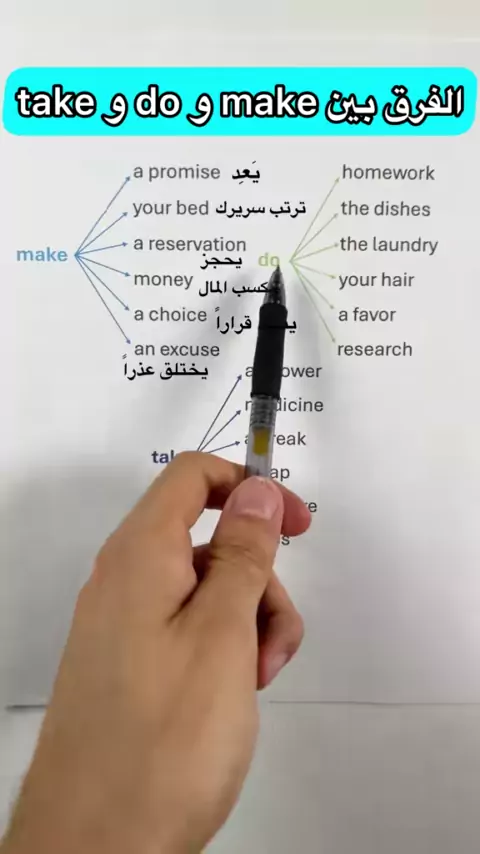 الفرق بين make و do و take
make
a promise يَعدِ
your bed ترتب سريرك
a reservation
يحجز
money
المال
a choice
قراراً
an excuse
يختلق عذراً
do
homework
the dishes
the laundry
your hair
a favor
research